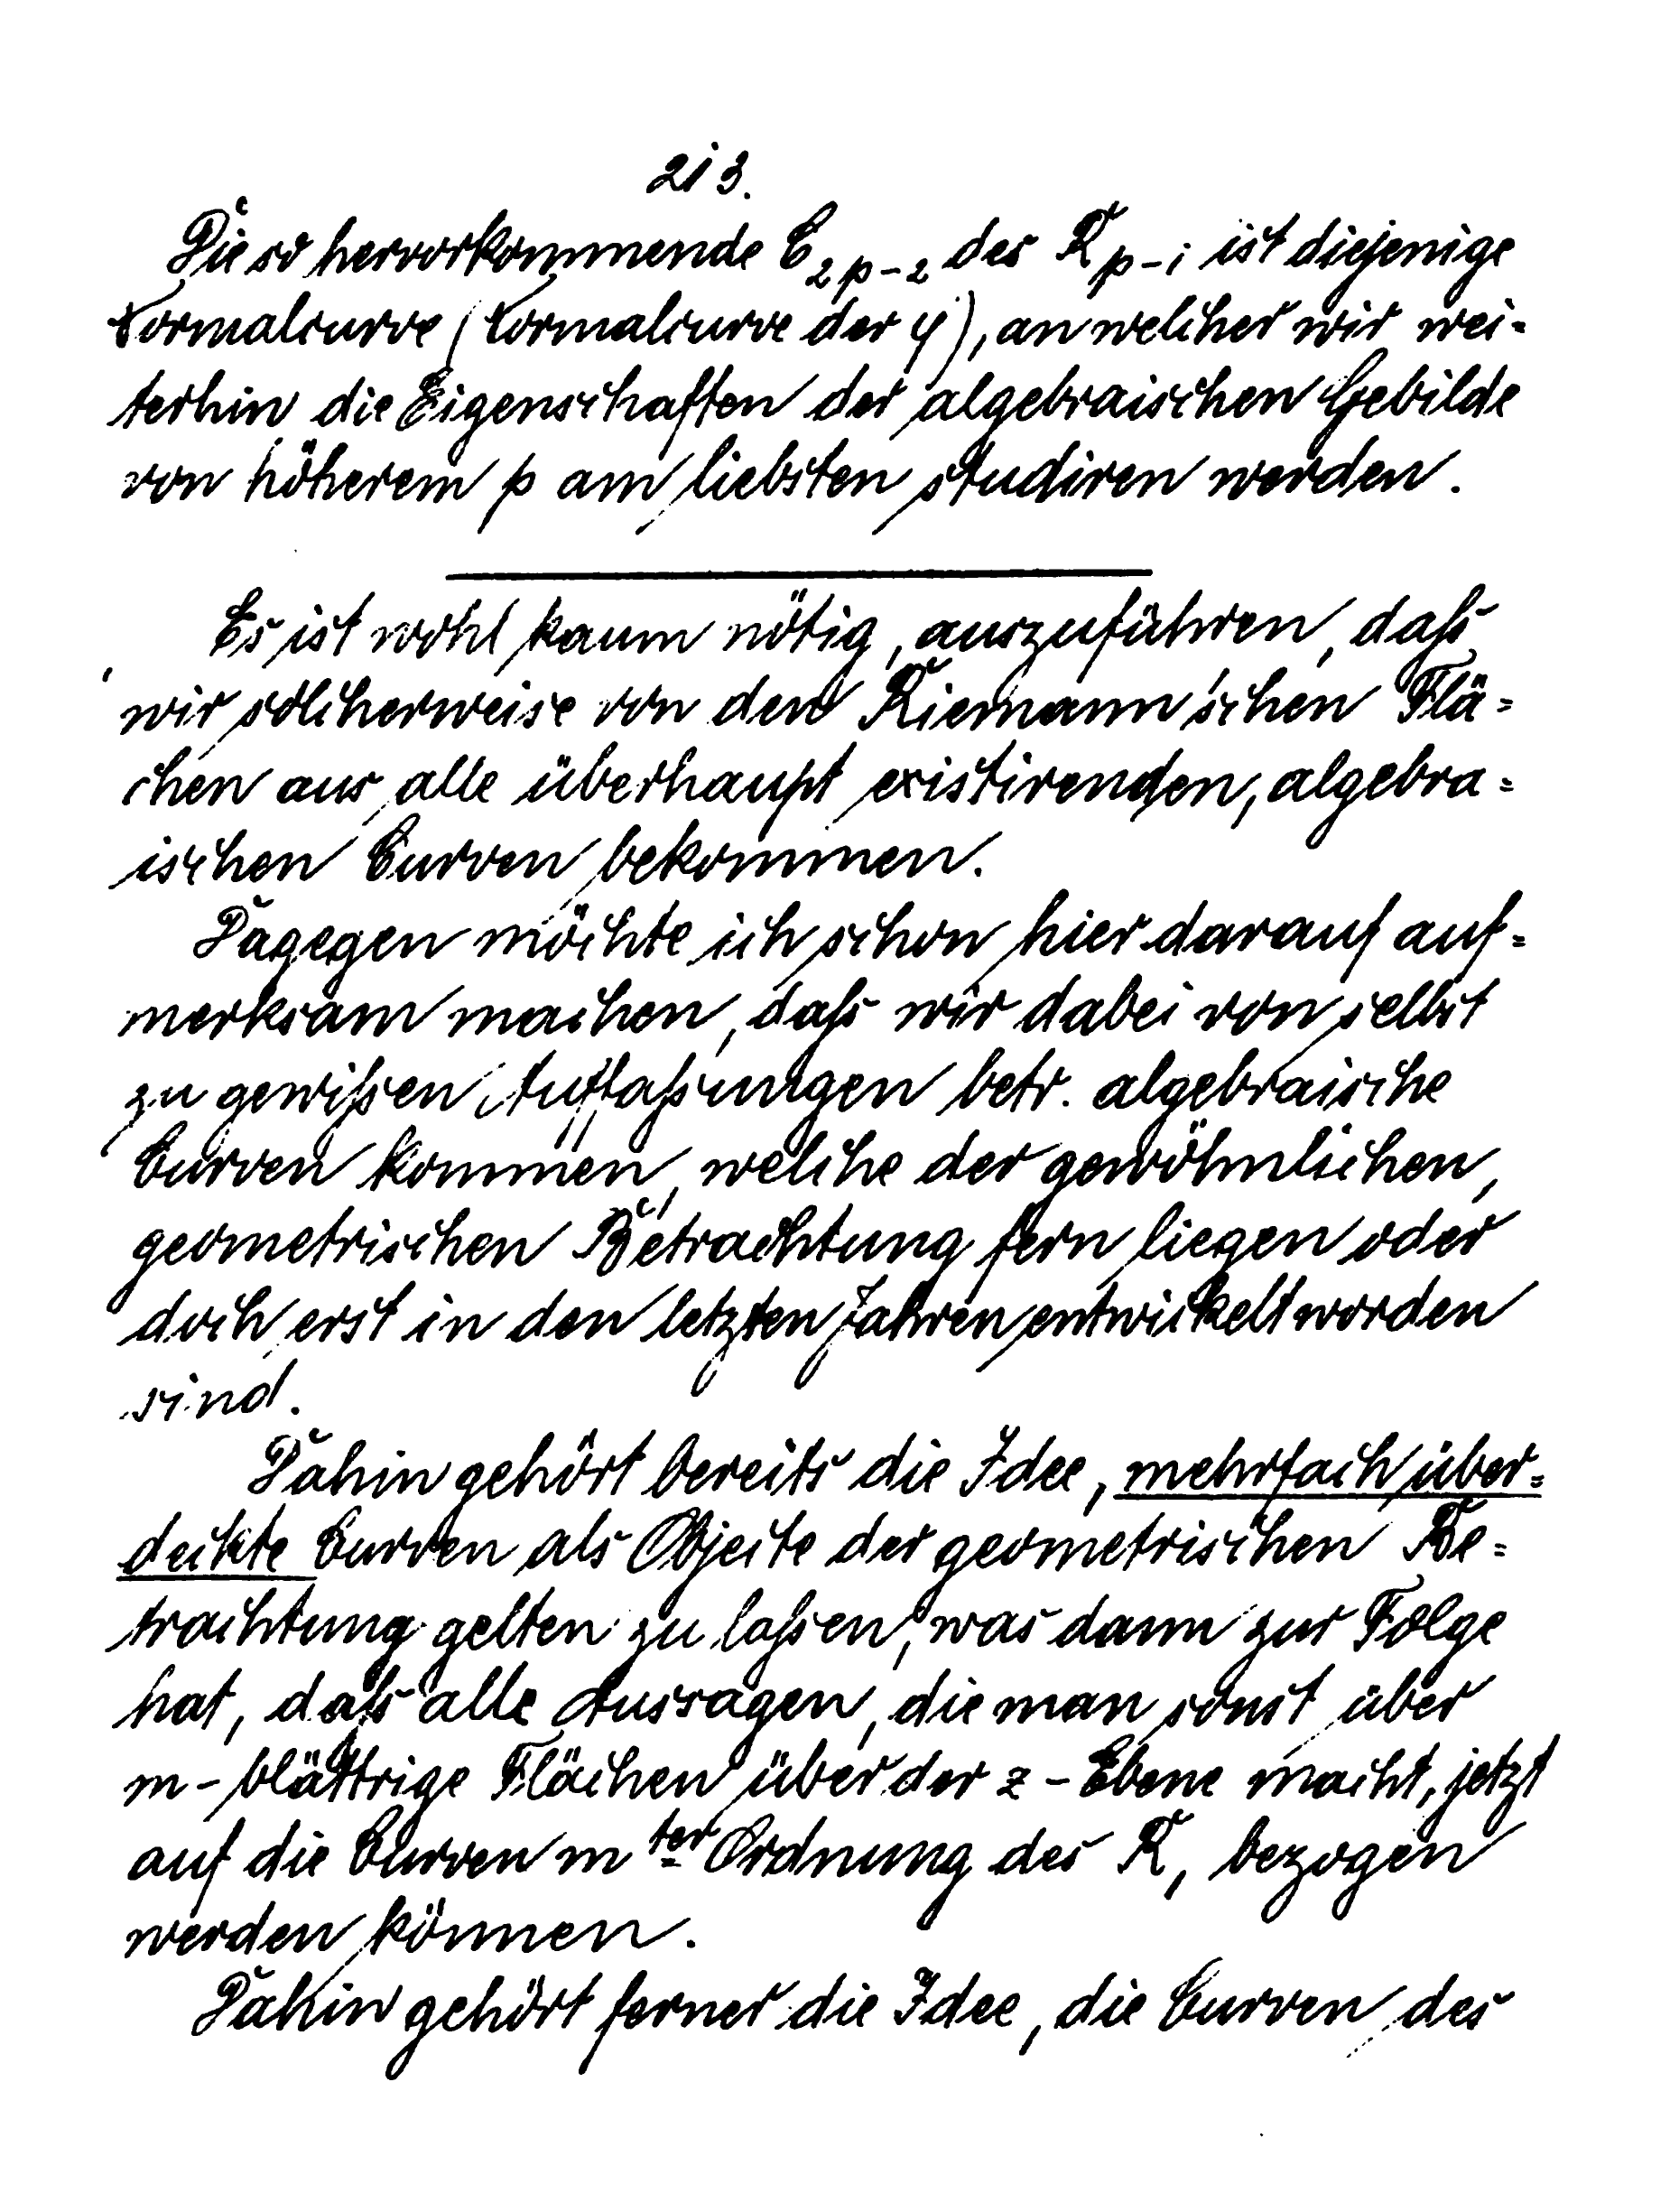 213.
Die so hervorkommende C_{2p-2} des R_{p-1} ist diejenige
Normalcurve (Normalcurve der φ), an welcher wir wei-
terhin die Eigenschaften der algebraischen Gebilde
von höherem p am liebsten studiren werden.
Es ist wohl kaum nötig, auszuführen, daß
wir solcherweise von den Riemann'schen Flä-
chen aus alle überhaupt existirenden, algebra-
ischen Curven bekommen.
Dagegen möchte ich schon hier darauf auf-
merksam machen, daß wir dabei von selbst
zu gewißen Auffaßungen betr. algebraische
Curven kommen, welche der gewöhnlichen,
geometrischen Betrachtung fern liegen oder
doch erst in den letzten Jahren entwickelt worden
sind.
Dahin gehört bereits die Idee, mehrfach über-
deckte Curven als Objecte der geometrischen Be-
trachtung gelten zu laßen, was dann zur Folge
hat, daß alle Aussagen, die man sonst über
m-blättrige Flächen über der z-Ebene macht, jetzt
auf die Curven m^{ter} Ordnung des R_1 bezogen
werden können.
Dahin gehört ferner die Idee, die Curven des